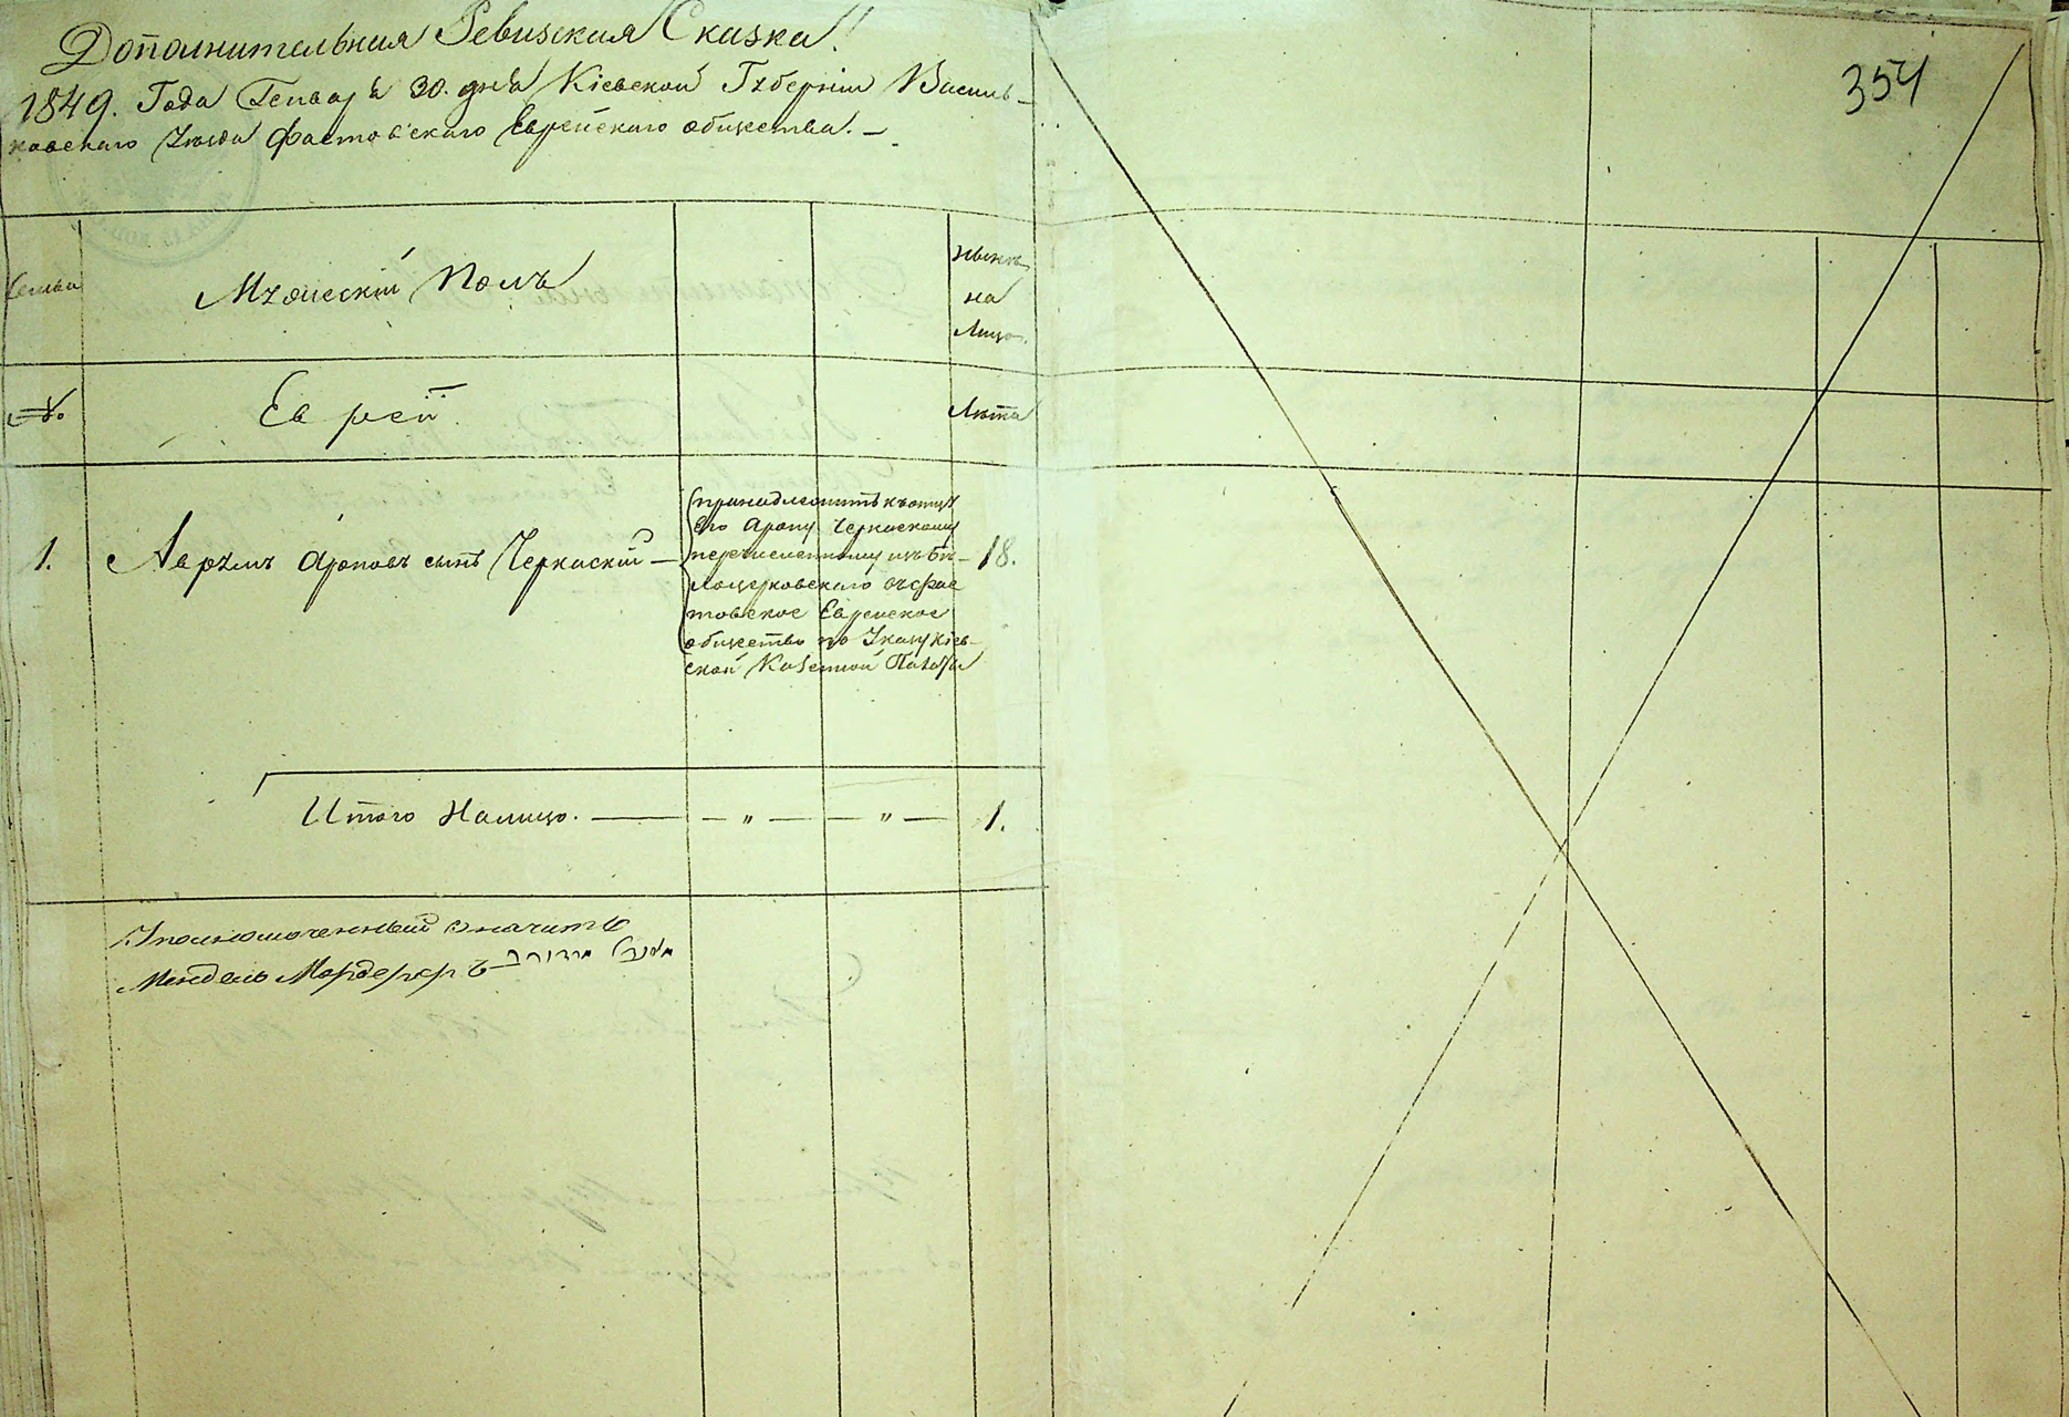 Дополнительная Ревизская Сказка.
354
1849. Года Генваря 30. дня Кіевской Губерніи Василь-
ковскаго Уѣзда Фастовскаго Еврейскаго общества. —
Семьи
Мужескій Полъ
Нынѣ
на
Лицо.
№.
Евреи
Лѣта
1. Аврумъ Ароновъ сынъ Черкаскій — 18.
принадлежитъ къ отцу
его Арону Черкаскому
перечисленному изъ Бѣ-
лоцерковскаго въ Фас
товское Еврейское
общество по Указу Кіев-
ской Казенной Палаты
Итого Налицо. — " — " — 1.
Уполномоченный значитъ
Мендель